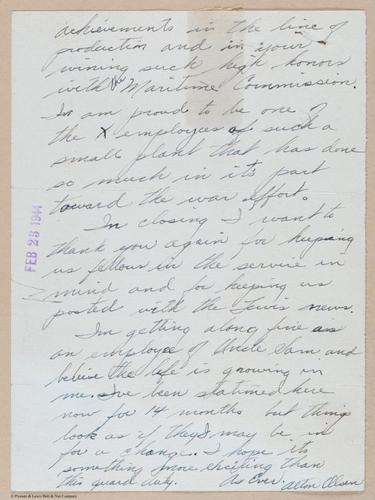 achievements in the line of
production and in your
wining such high honors
with the Maritime Commission.
I'm am proud to be one of
the X employees of such a
small plant that has done
so much in its part
toward the war effort.
In closing I want to
thank you again for keeping
us fellows in the service in
mind and for keeping us
posted with the Lewis news.
I'm getting along fine as
an employee of Uncle Sam and
believe the life is growing in
me. I've been stationed here
now for 14 months but things
look as if they I may be in
for a change. I hope its
something more exciting than
this guard duty. As Ever.
Alton Olson
FEB 28 1944